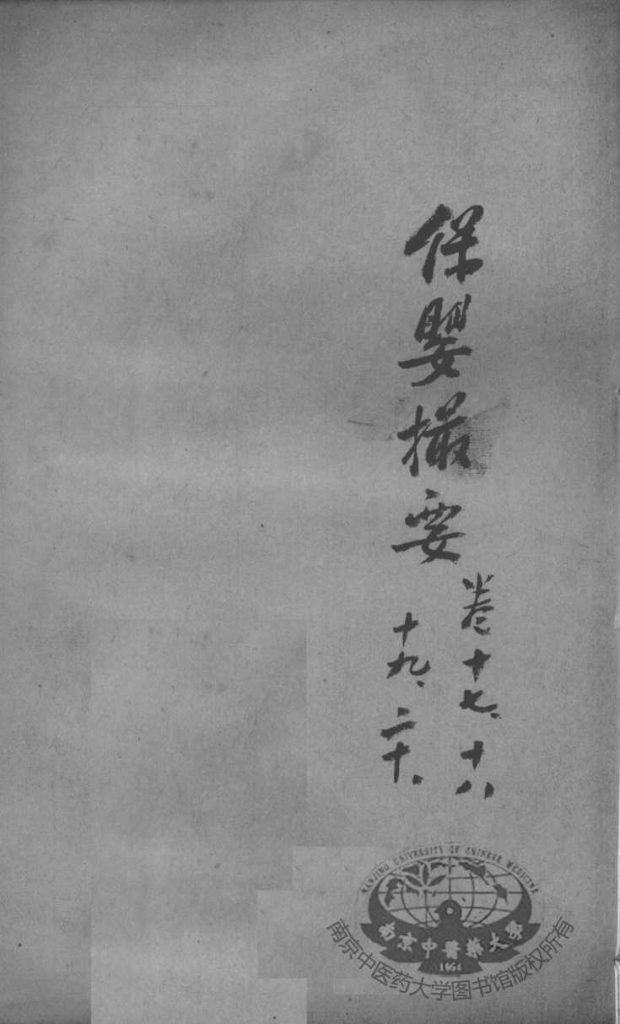 保嬰撮要
卷十七、十八
十九、二十、
NANJING UNIVERSITY OF CHINESE MEDICINE
南京中醫藥大學
1954
南京中医药大学图书馆版权所有